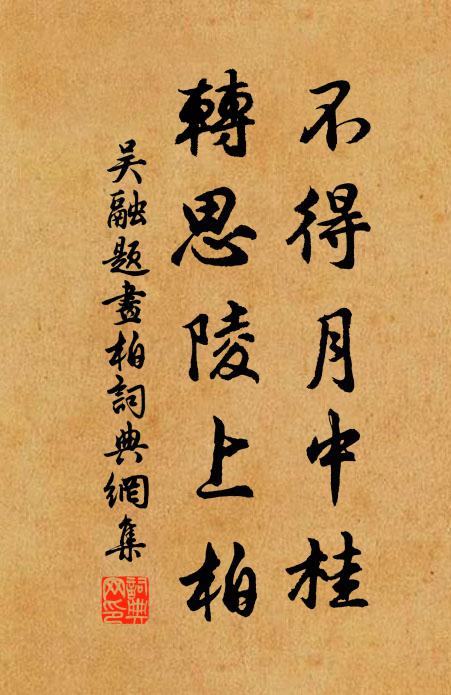 不得月中桂
轉思陵上柏
吴融題畫柏詞典網集
詞典
网印